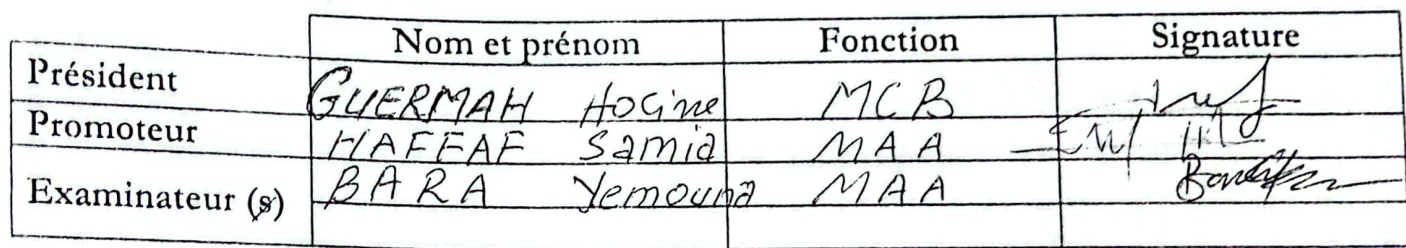 Nom et prénom Fonction Signature
Président GUERMAH Hocine MCB
Promoteur HAFFAF Samia MAA
Examinateur (s) BARA Yemouna MAA